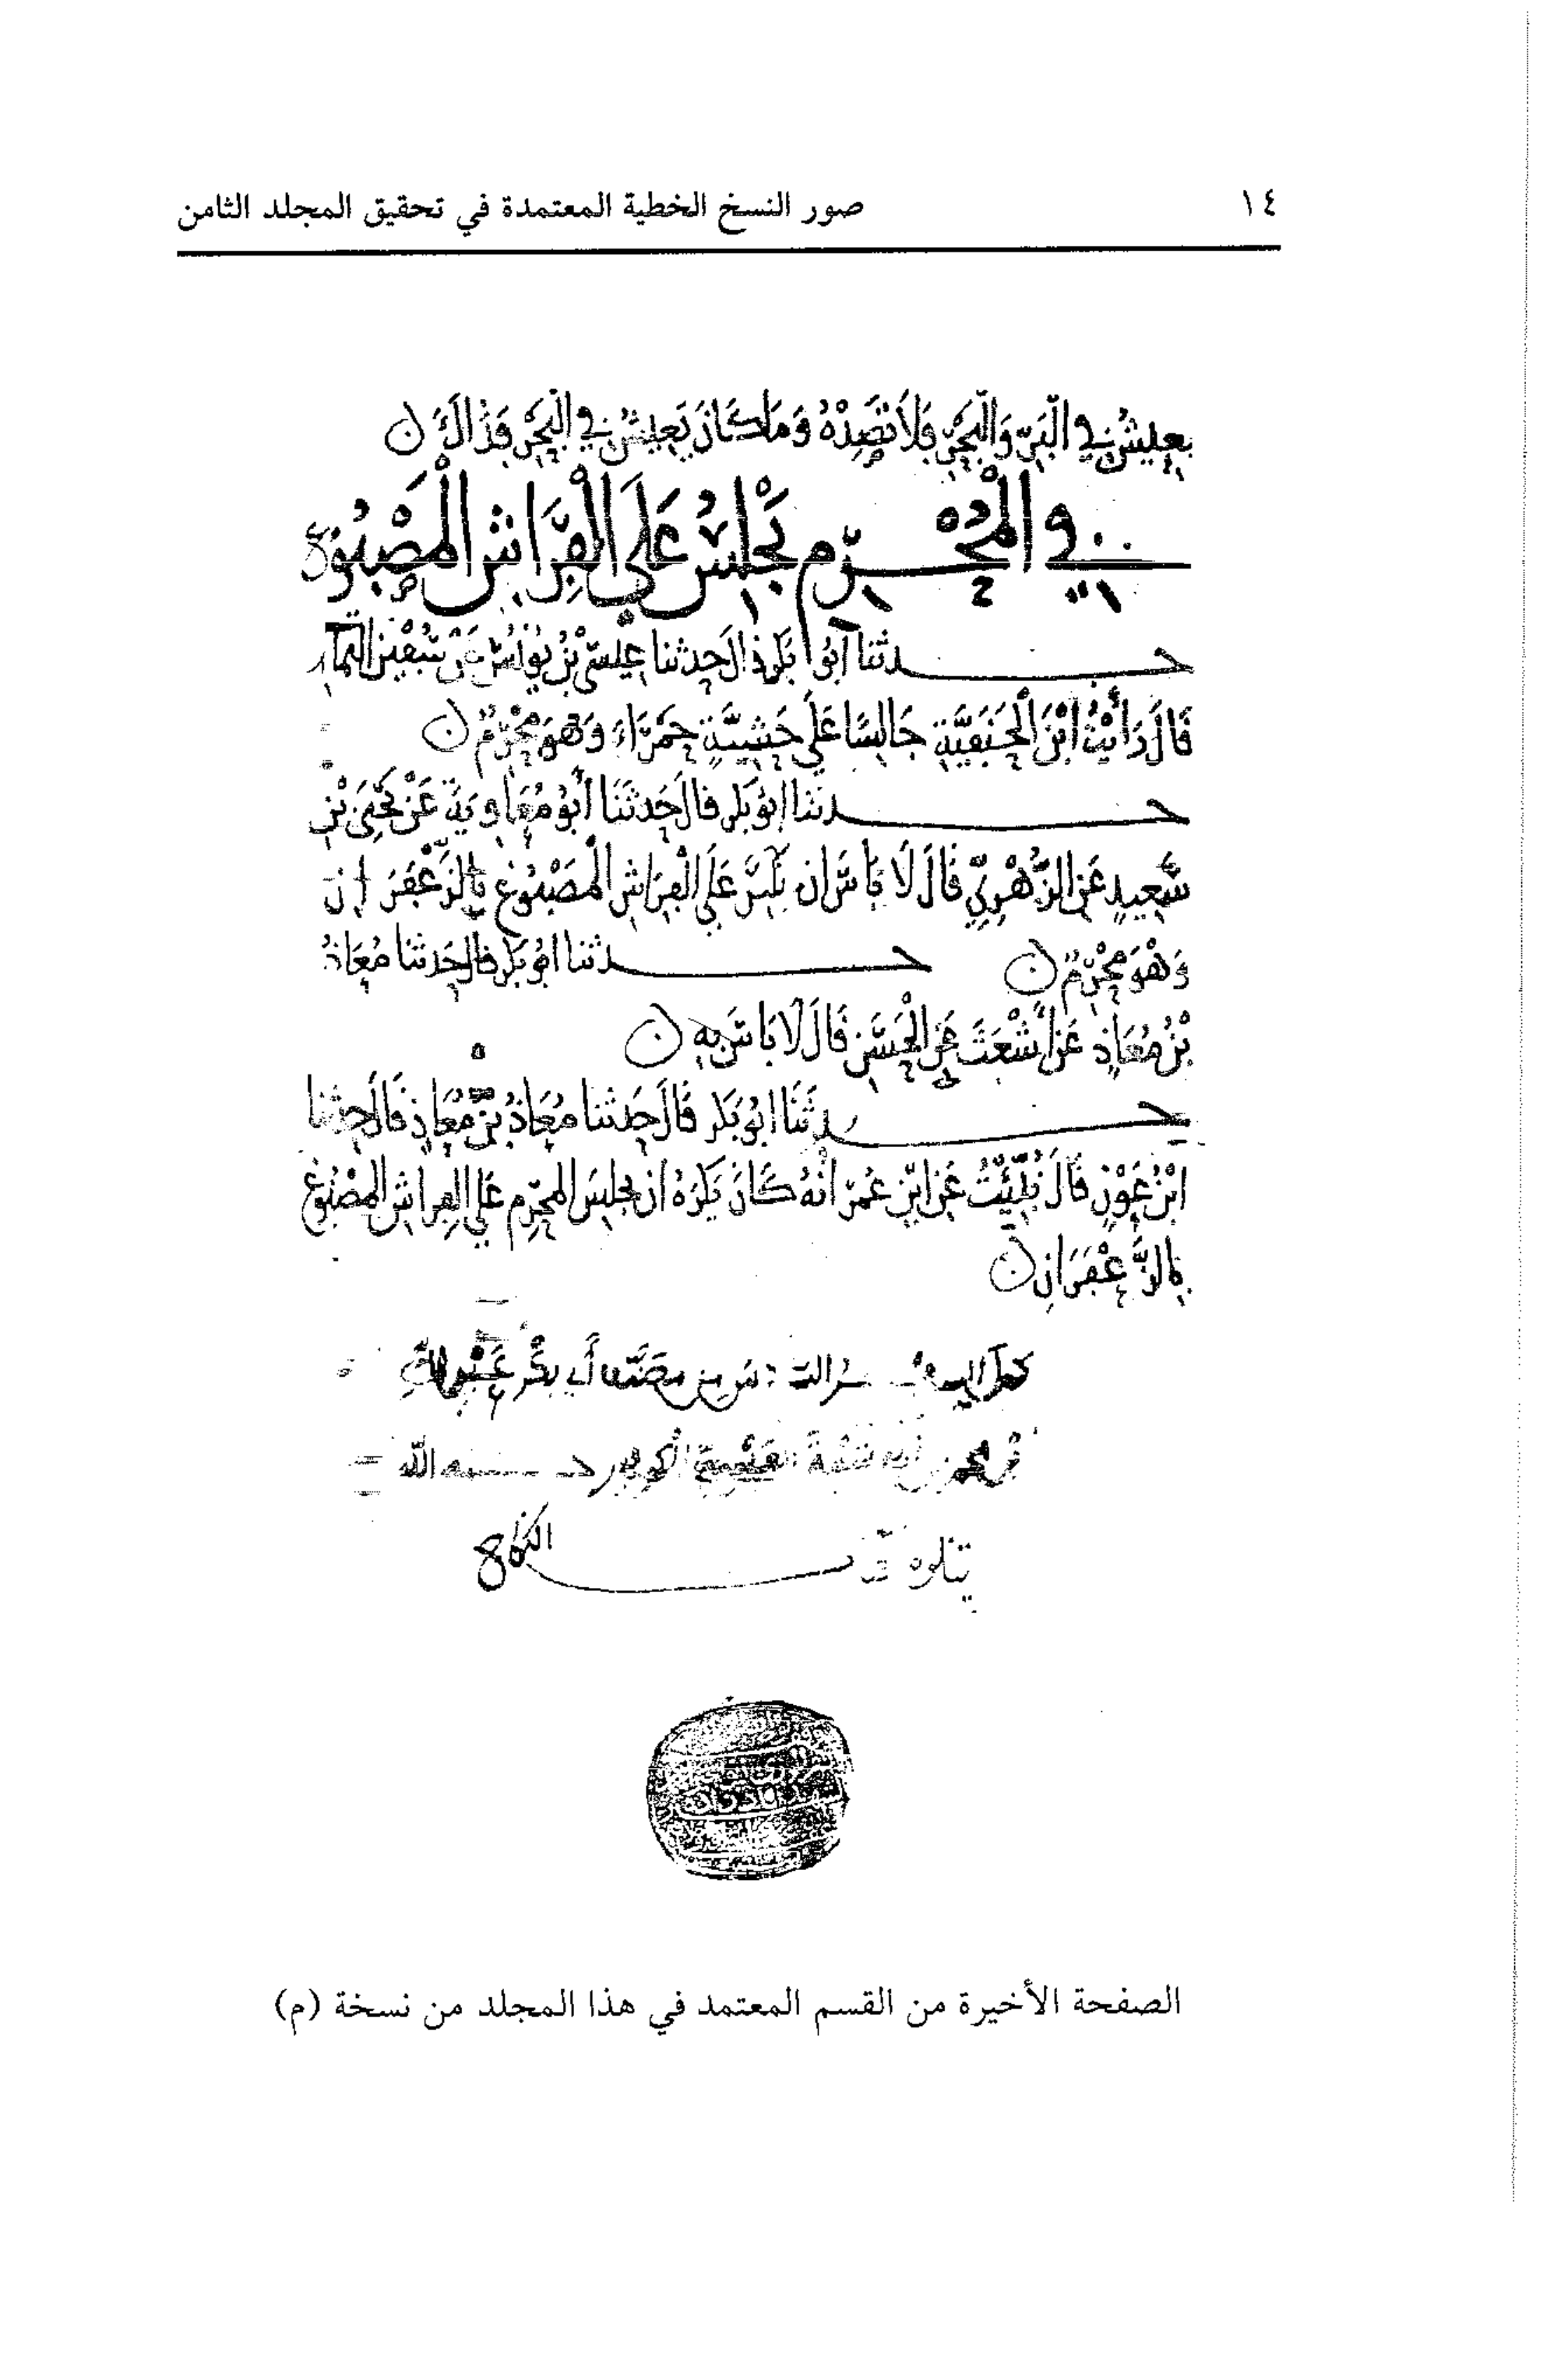 ١٤
صور النسخ الخطية المعتمدة في تحقيق المجلد الثامن
يَعِيشُ فِي الْبَرِّ وَالْبَحْرِ فَلَا تَصِدْهُ وَمَا كَانَ يَعِيشُ فِي الْبَحْرِ فَذَاكَ
في الْمُحْرِم يَجْلِسُ عَلَى الْفِرَاشِ الْمَصْبُوغ
حدثنا أبو بكر قال حدثنا عيسى بْنُ يُونُسَ عَنْ سُفْيَن
قَالَ رَأَيْتُ ابْنَ الْحَنَفِيَّةِ جَالِسًا عَلَى حَشِيَّةٍ حَمْرَاءَ وَهُوَ مُحْرِمٌ
حدثنا ابو بكر قال حَدثَنَا أَبُو مُعَاوِيَةَ عَنْ يَحْيَى بْنِ
سَعِيدٍ عَنِ الزُّهْرِيِّ قَالَ لَا بَأسَ ان عَلَى الْفِرَاشِ الْمَصْبُوغِ بِالزَّعْفَرَانِ
وَهْوَ مُحْرِمٌ
حدثنا ابو بكر قال حَدثنا مُعَاذُ
بْنُ مُعَاذٍ عَنْ أَشْعَثَ عَنِ الْحَسَنِ قَالَ لَا بَاسَ بِهِ
حدثَنَا ابُو بَكر قَالَ حَدثنا مُعَاذُ بْنُ مُعَاذٍ قَالَ حدثنا
ابْنُ عَوْنٍ قَالَ نُبِّئْتُ عَنِ ابْنِ عُمَرَ انَّهُ كَانَ يَكْرَهُ ان يجلِسَ المحرِم عَلى الفِراشِ المصْبُوغِ
بِالزَّعْفَرَانِ
مصنف أَبي بكر عَبْدِ اللهِ
بن محمد بن أبي شيبة الله
يتلوه
الصفحة الأخيرة من القسم المعتمد في هذا المجلد من نسخة (م)